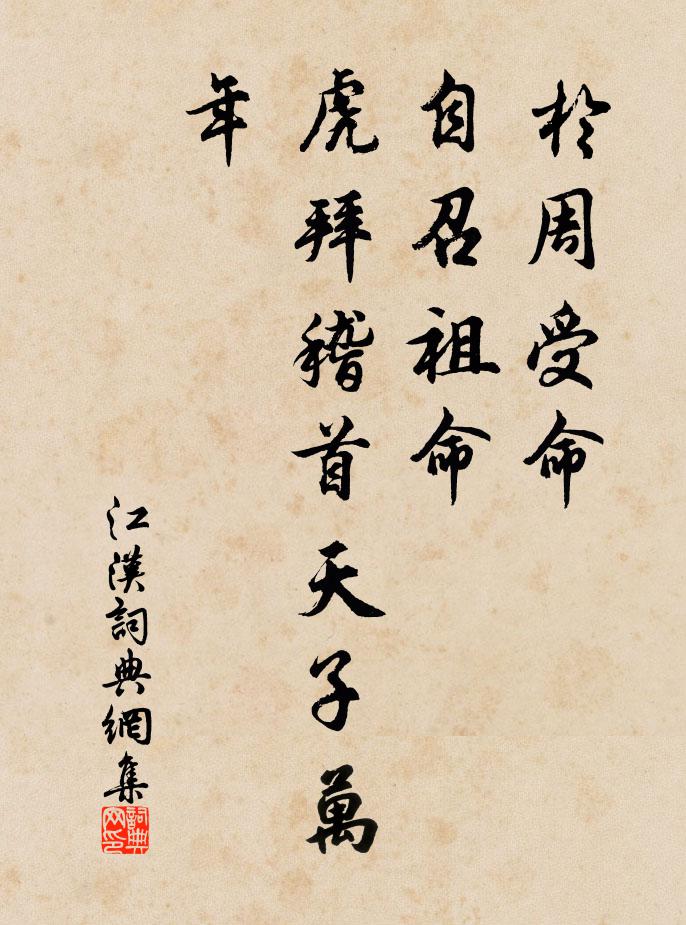 於周受命
自召祖命
虎拜稽首天子萬
年
江漢詞典網集
詞典
网印